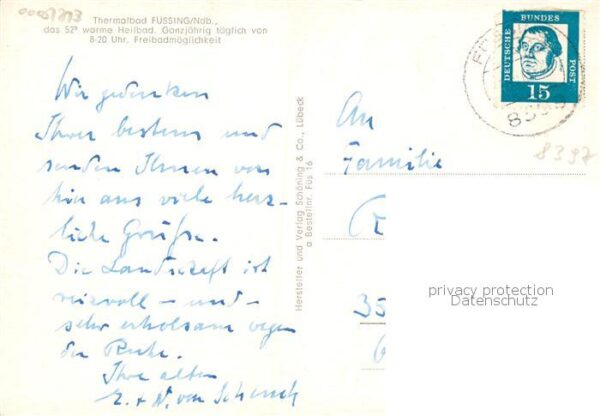 00051213
Thermalbad FÜSSING/Ndb.,
das 52° warme Heilbad. Ganzjährig täglich von
8-20 Uhr, Freibadmöglichkeit
Wir gedenken
Ihrer bestens und
senden Ihnen von
hier aus viele herz-
liche Grüße.
Die Landschaft ist
reizvoll – und –
sehr erholsam wegen
der Ruhe.
Ihre alten
E. + W. von Schenck
Hersteller und Verlag Schöning & Co., Lübeck
a Bestellnr. Füs 16
DEUTSCHE BUNDES POST
15
8397
An
Familie
35
privacy protection
Datenschutz